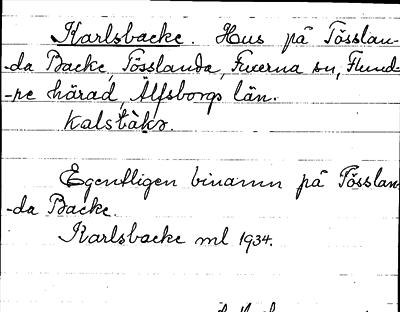 Karlsbacke. Hus på Tösslan-
-da Backe, Tösslanda, Fuxerna sn, Flund-
-re härad, Älfsborgs län.
Egentligen binamn på Tösslan-
-da Backe.
Karlsbacke ml 1934.